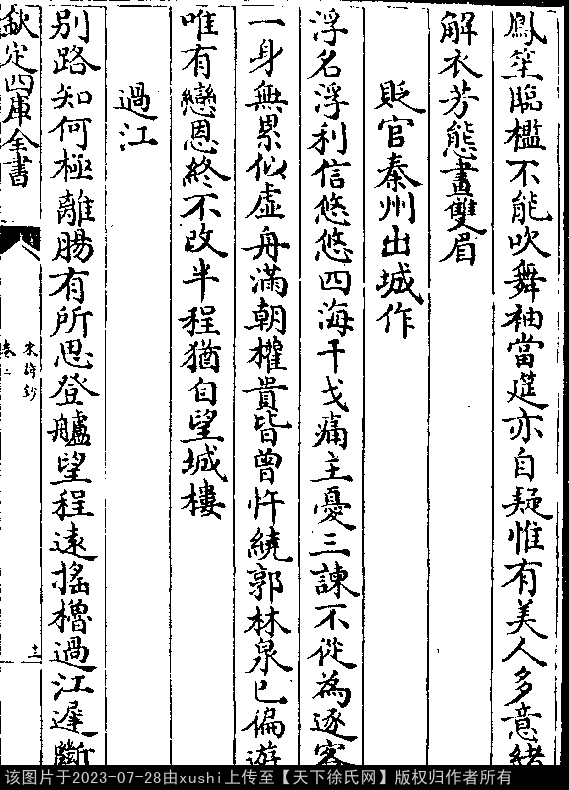 鳳笙臨檻不能吹舞袖當筵亦自疑惟有美人多意緒
解衣芳態畫雙眉
貶官秦州出城作
浮名浮利信悠悠四海干戈痛主憂三諫不從為逐客
一身無累似虛舟滿朝權貴皆曾忤繞郭林泉已徧遊
唯有戀恩終不改半程猶自望城樓
過江
別路知何極離腸有所思登艫望程遠搖櫓過江遲斷
欽定四庫全書
宋詩鈔
卷二
十二
该图片于2023-07-28由xushi上传至【天下徐氏网】版权归作者所有